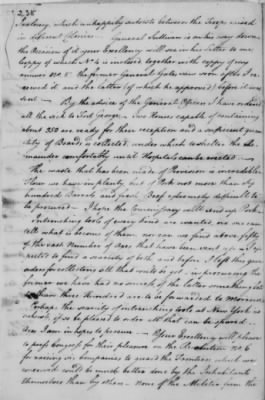 238
Jealousy, which unhappily subsists between the Troops raised
in different Colonies. General Sullivan is on his way down
the Reasons of it your Excellency will see in his Letter to me
Copy of which No 4 is inclosed together with copy of my
answer No 5 the former General Gates saw soon after I re-
ceived it and the latter (of which he approved) before it was
sent — By the advice of the General Officers I have ordered
all the sick to Fort George. Two Houses capable of containing
about 250 are ready for their reception and a sufficient quan-
tity of Boards is collected, under which to shelter the re-
mainder comfortably until Hospitals can be erected —
The waste that has been made of Provision is incredible.
Flour we have in plenty but of Pork not more than
hundred Barrels and fresh Beef extremely difficult to
be procured. I hope the Commissary will send up Pork.
Intrenching tools of every kind are wanted, no one can
tell what is become of them, nor can we find above fifty
of the vast Number of Axes that have been sent up
to find a scarcity of both and before I left this gave
orders for collecting all that could be got, in procuring the
former we have had no success of the latter something
than three Hundred are to be forwarded to morrow.
Perhaps the variety of intrenching tools at New York is
if so be pleased to order all that can be spared.
I am in hopes to procure — Your Excellency will please
to press Congress for their pleasure on the Resolution No 6
for raising six Companies to guard the Frontiers which we
conceived could be much better done by the Inhabitants
themselves than by others. None of the Militia from the